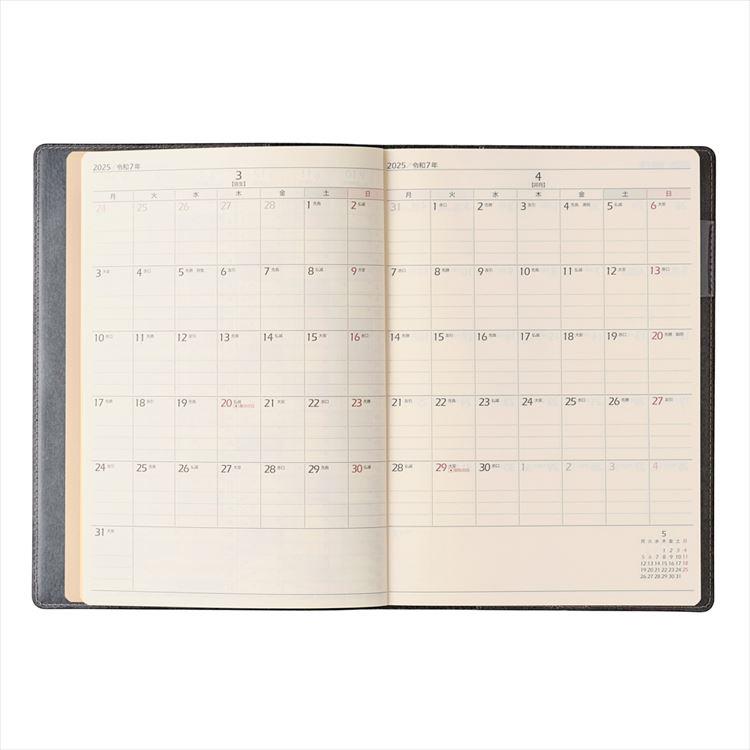 2025／令和7年
3
【弥生】
月 火 水 木 金 土 日
24 25 26 27 28 1先負 2仏滅
3大安 4赤口 5先勝 啓蟄 6友引 7先負 8仏滅 9大安
10赤口 11先勝 12友引 13先負 14仏滅 15大安 16赤口
17先勝 18友引 19先負 20仏滅 春分の日 21大安 22赤口 23先勝
24友引 25先負 26仏滅 27大安 28赤口 29先負 30仏滅
31大安
2025／令和7年
4
【卯月】
月 火 水 木 金 土 日
31 1赤口 2先勝 3友引 4先負 清明 5仏滅 6大安
7赤口 8先勝 9友引 10先負 11仏滅 12大安 13赤口
14先勝 15友引 16先負 17仏滅 18大安 19赤口 20先勝 穀雨
21友引 22先負 23仏滅 24大安 25赤口 26先勝 27友引
28仏滅 29大安 昭和の日 30赤口 1 2 3 4
5
月 火 水 木 金 土 日
1 2 3 4
5 6 7 8 9 10 11
12 13 14 15 16 17 18
19 20 21 22 23 24 25
26 27 28 29 30 31